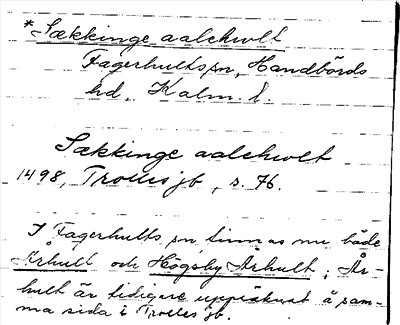 *Sækkinge aalehwlt
Fagerhults sn, Handbörds
hd, Kalm. l.
Sækkinge aalehwlt
1498, Trolles jb, s. 76.
I Fagerhults sn finnas nu både
Århult och Högsby Århult; År-
hult är tidigare uppräknat å sam-
ma sida i Trolles jb.